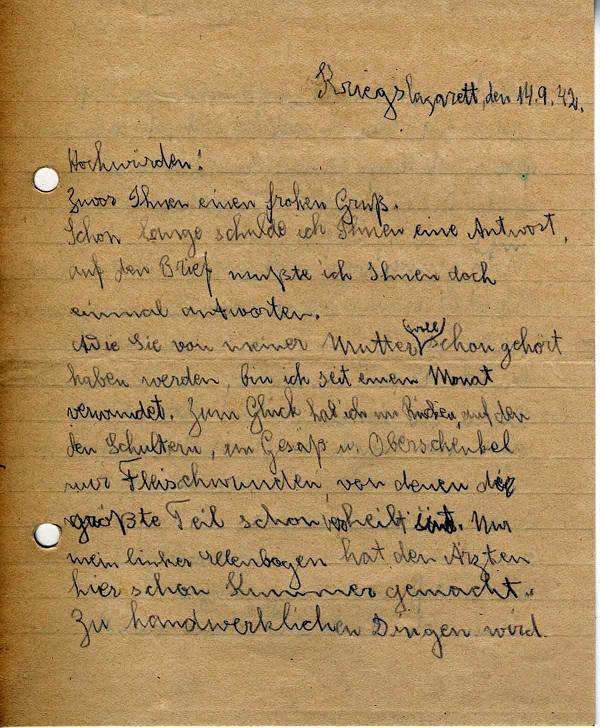 Kriegslazarett, den 14.9.42.
Hochwürden!
Zuvor Ihnen einen frohen Gruß.
Schon lange schulde ich Ihnen eine Antwort,
auf den Brief mußte ich Ihnen doch
einmal antworten.
Wie Sie von meiner Mutter (wohl) schon gehört
haben werden, bin ich seit einem Monat
verwundet. Zum Glück hab ich im Rücken, auf den
den Schultern, im Gesäß u. Oberschenkel
nur Fleischwunden, von denen der
größte Teil schon verheilt sind. Nur
mein linker Ellenbogen hat den Ärzten
hier schon Kummer gemacht.
Zu handwerklichen Dingen wird